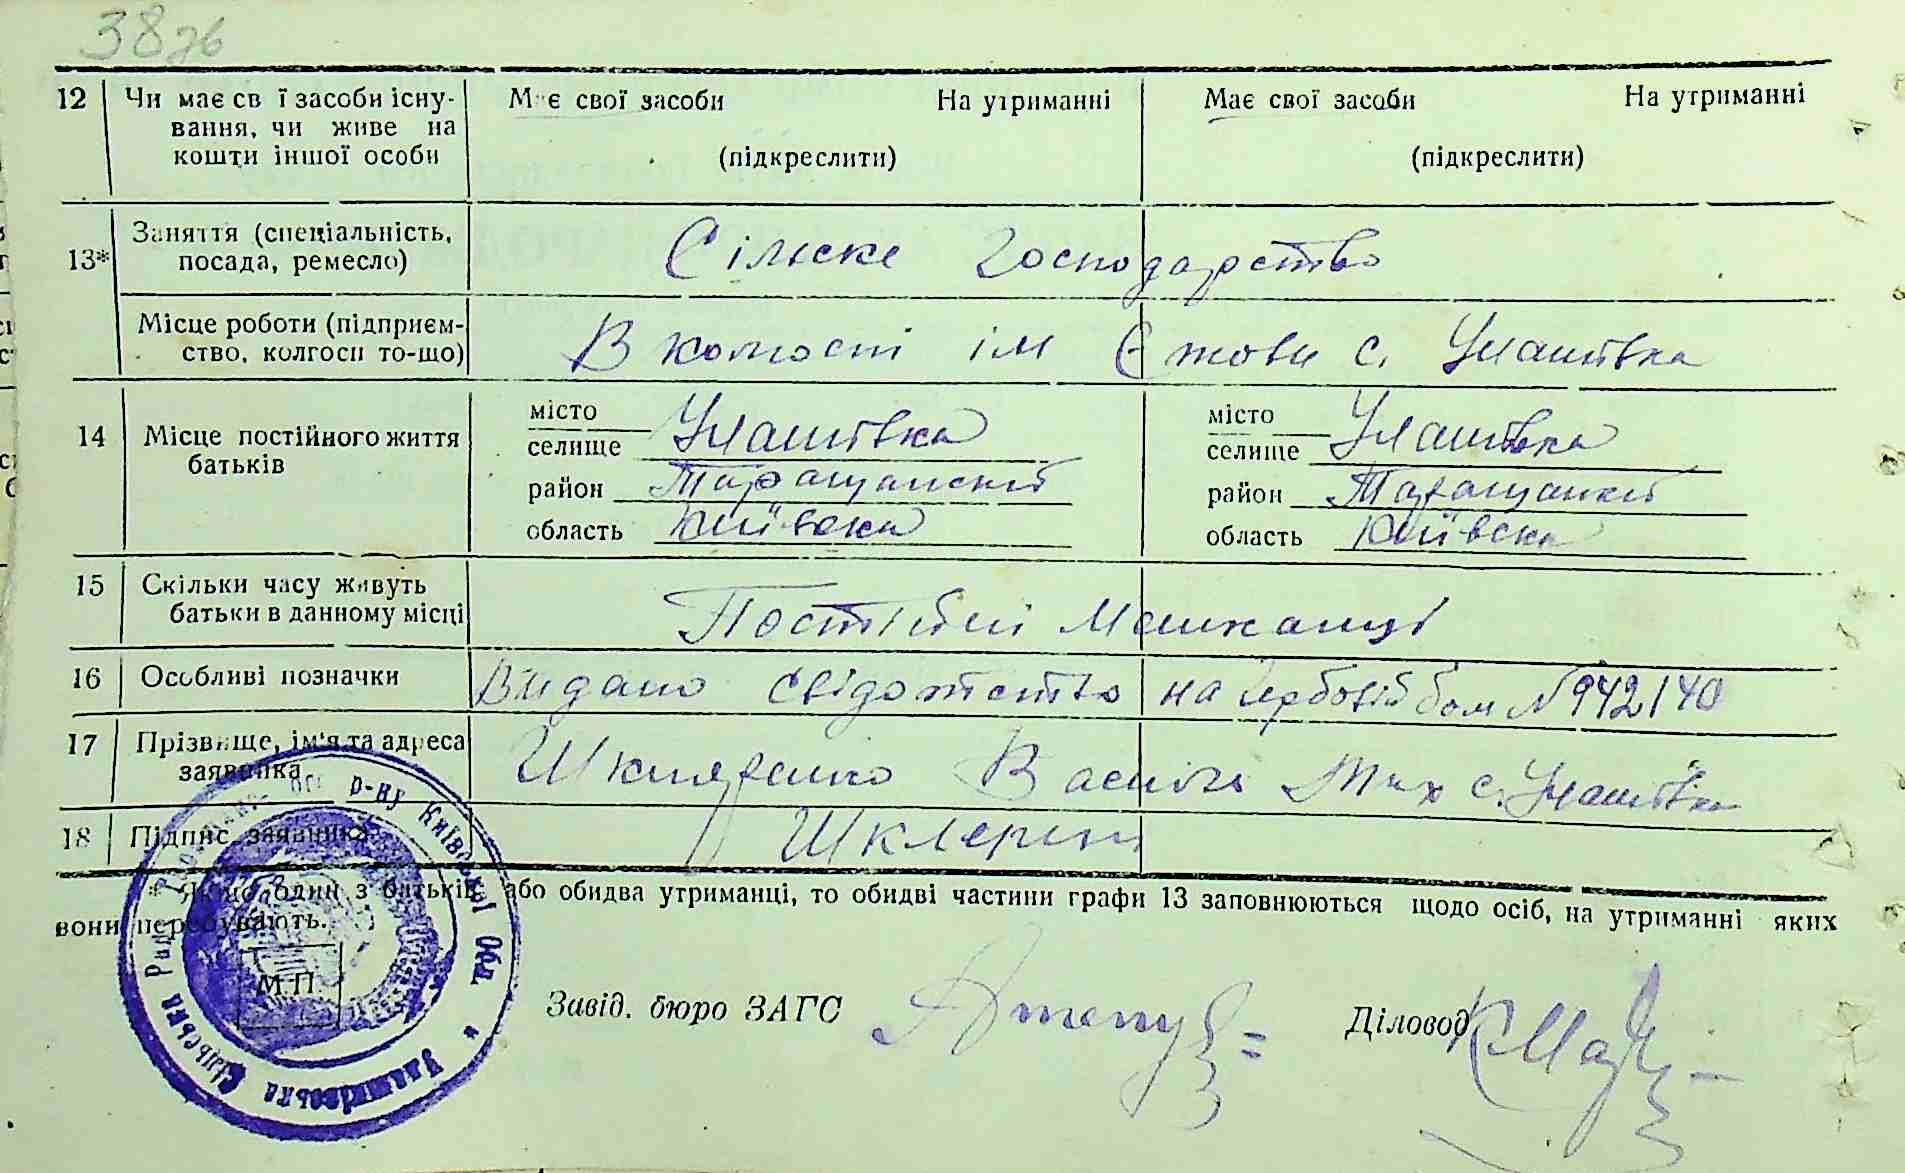 38зв
12 Чи має св ї засоби існу- Має свої засоби На утриманні Має свої засоби На утриманні
вання, чи живе на
кошти іншої особи (підкреслити) (підкреслити)
13* Заняття (спеціальність, Сільске Господарство
посада, ремесло)
Місце роботи (підприєм- В колгоспі ім Єжова с. Улашівка
ство, колгосп то-що)
14 Місце постійного життя батьків
місто
селище Улашівка
район Таращанский
область Київска
місто
селище Улашівка
район Таращанскій
область Київска
15 Скільки часу живуть Постійні Мешканці
батьки в данному місці
16 Особливі позначки Видано свідотство на гербовій бом № 942140
17 Прізвище, ім'я та адреса Шкляренко Василь Тих с. Улашівка
заявника
18 Підпис заявника Шклерен
* Якщо один з батьків, або обидва утриманці, то обидві частини графи 13 заповнюються щодо осіб, на утриманні яких
вони перебувають.
М.П.
Завід. бюро ЗАГС
Діловод
р-ну Київської Обл. * Улашівська Сільська Рада